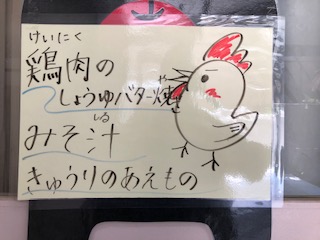 けいにく
鶏肉の
しょうゆバター焼き
や
みそ汁
しる
きゅうりのあえもの